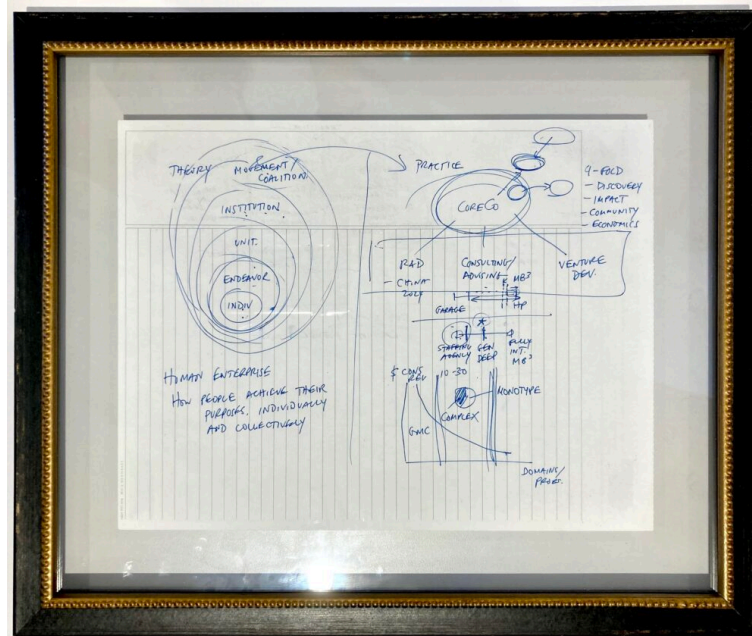 THEORY
MOVEMENT/
COALITION
INSTITUTION
UNIT
ENDEAVOR
INDIV
HUMAN ENTERPRISE
HOW PEOPLE ACHIEVE THEIR
PURPOSES. INDIVIDUALLY
AND COLLECTIVELY
PRACTICE
CORECO
4-FOLD
- DISCOVERY
- IMPACT
- COMMUNITY
- ECONOMICS
R&D
- CHINA
CONSULTING/
ADVISING
VENTURE
DEV.
MB³
HP
GARAGE
STAFFING
AGENCY
GEN
DEEP
FULLY
INT.
MB³
$ CONS
REV
10-30
MONOTYPE
COMPLEX
GMC
DOMAINS/